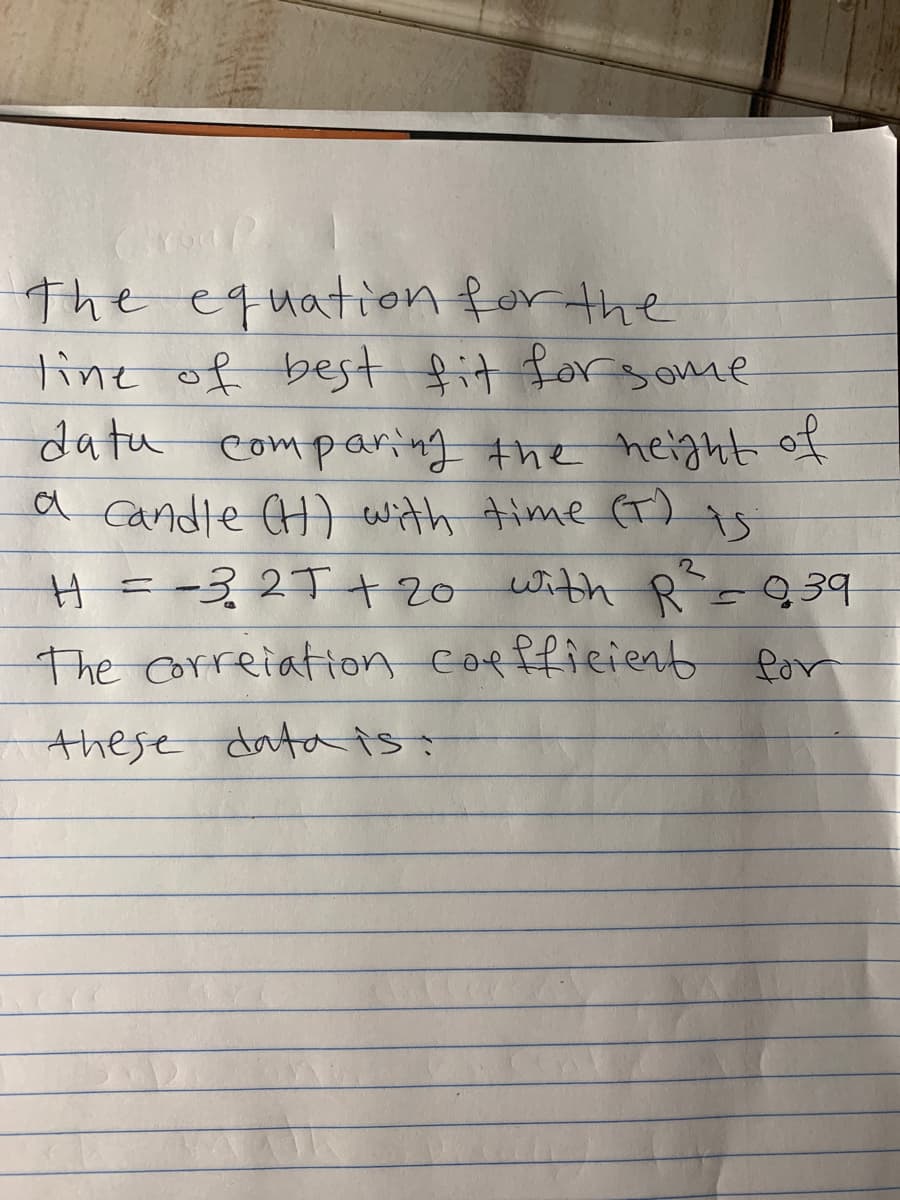 The equation for the
line of best fit for some
datu comparing the height of
a candle (H) with time (T) is
H = -3.2T + 20 with R² = 0.39
The correiation coefficient for
these data is: